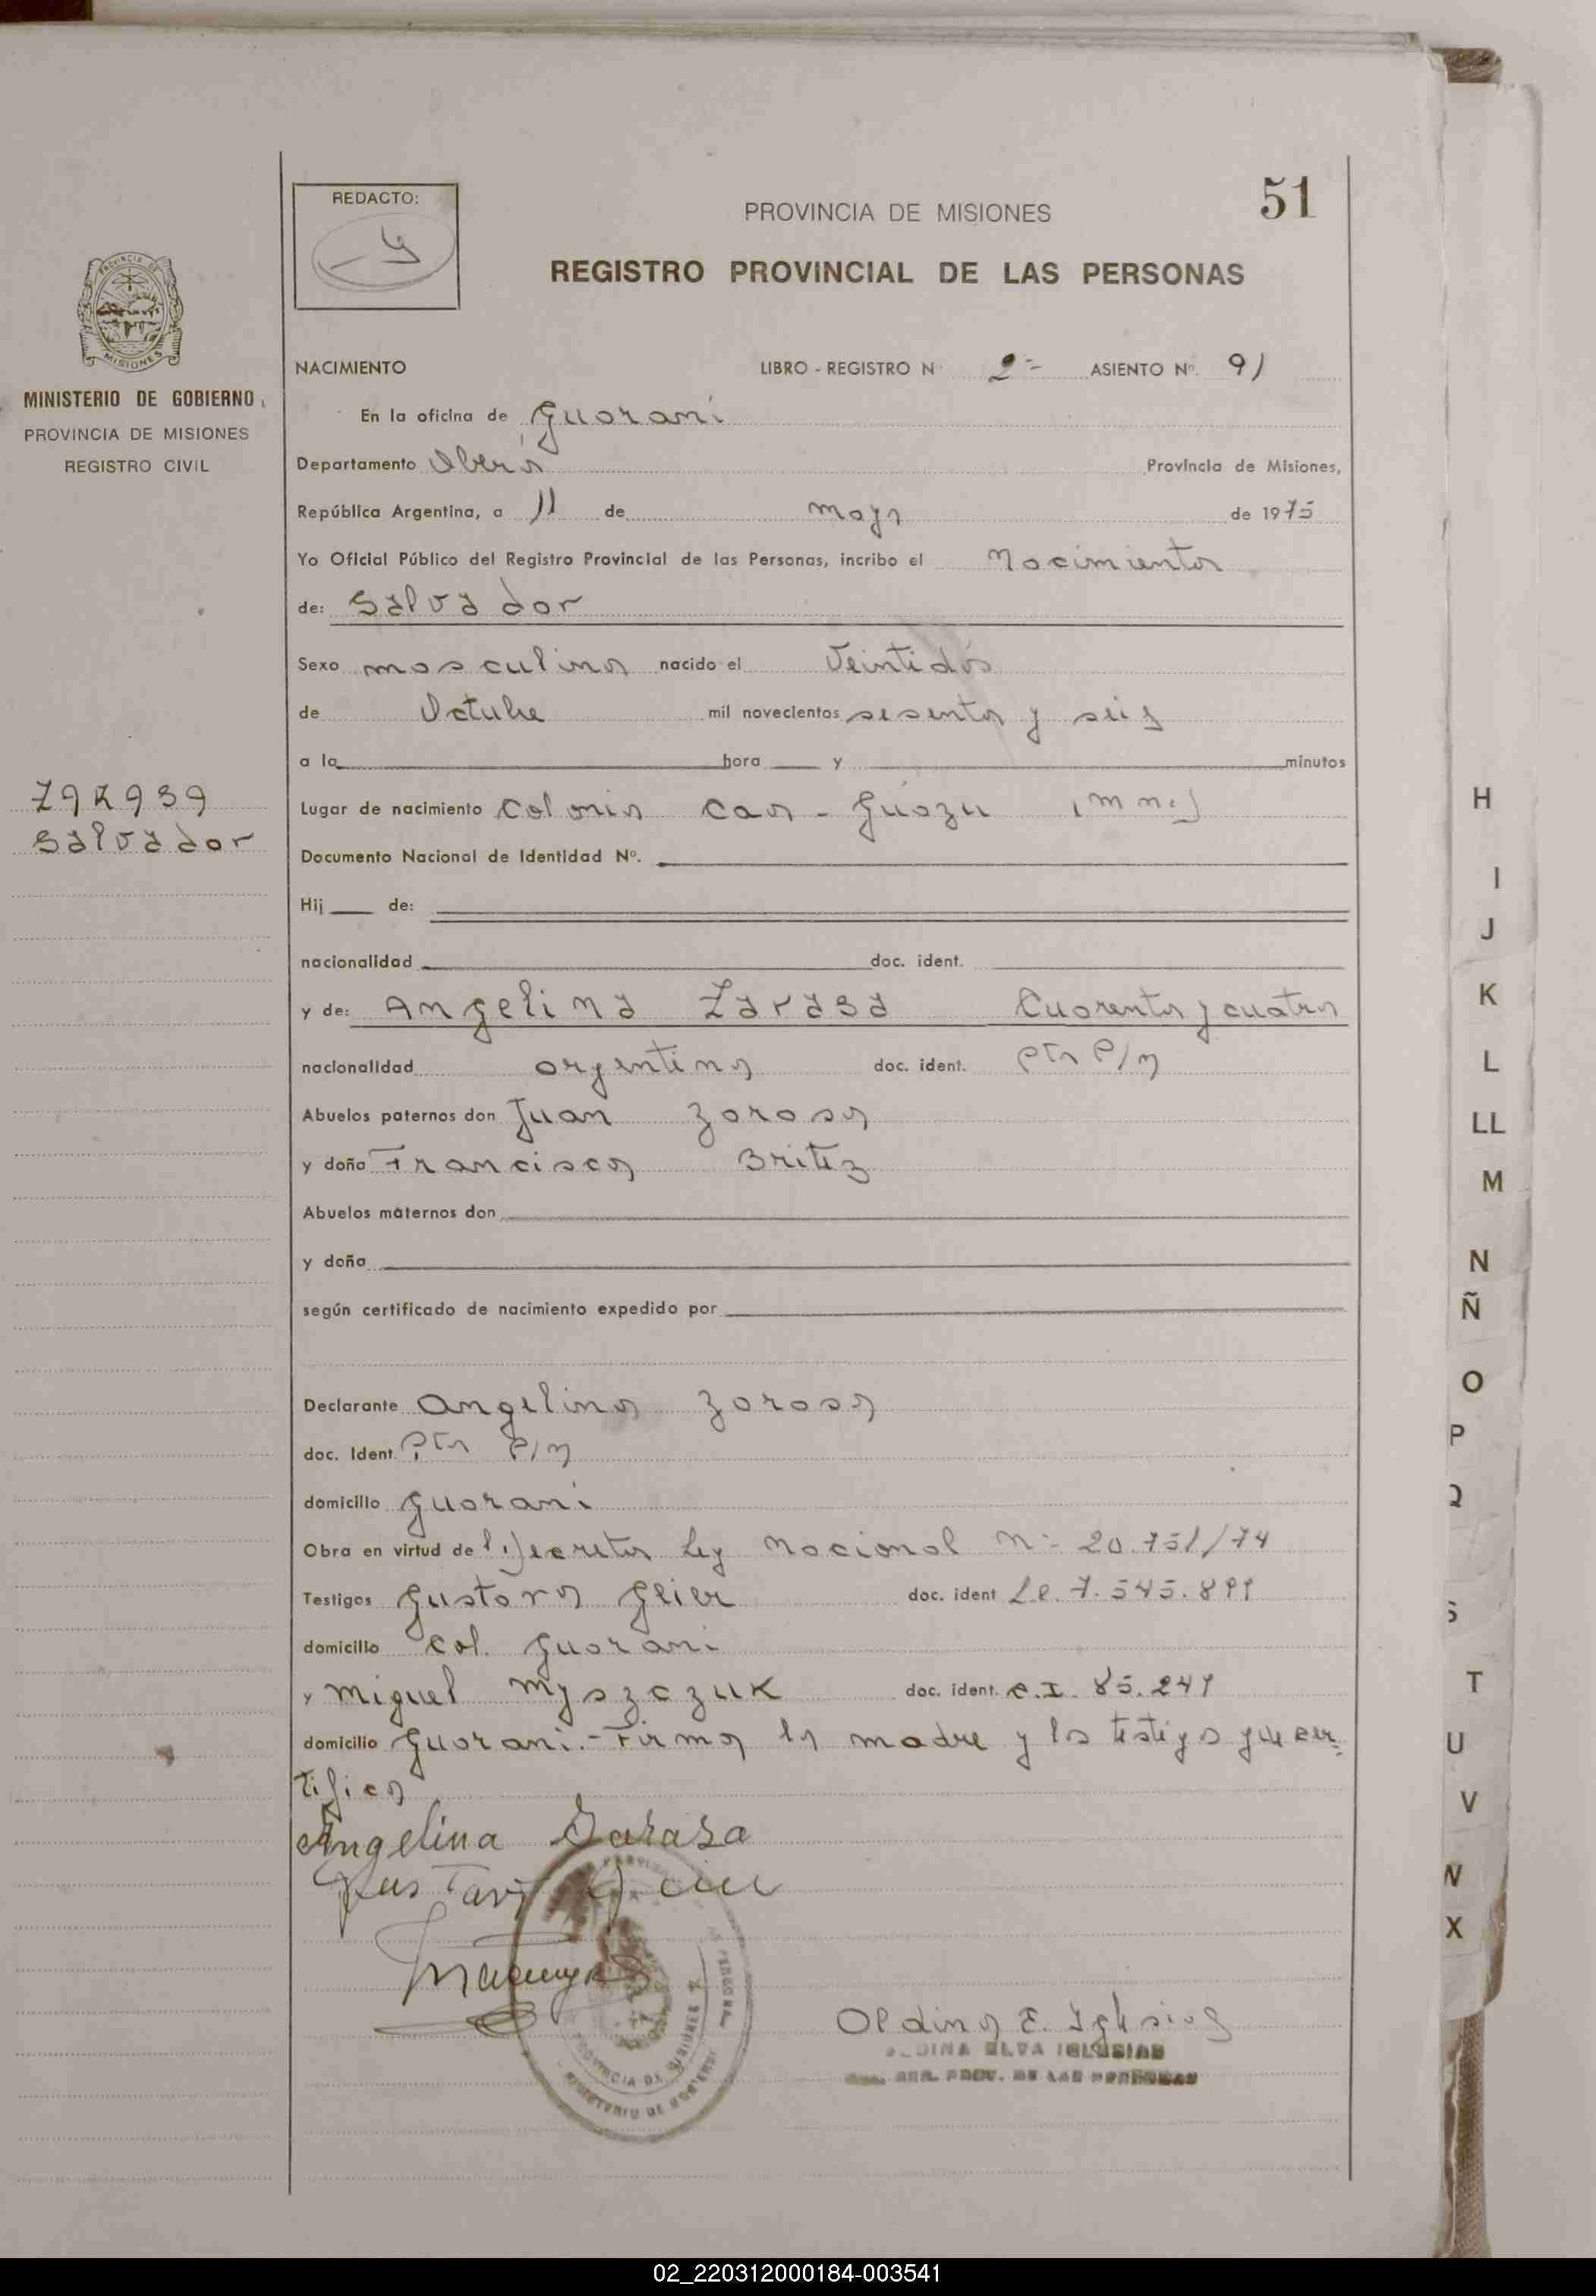 51
REDACTO:
PROVINCIA DE MISIONES
REGISTRO PROVINCIAL DE LAS PERSONAS
MINISTERIO DE GOBIERNO
PROVINCIA DE MISIONES
REGISTRO CIVIL
NACIMIENTO LIBRO - REGISTRO N° 2= ASIENTO Nº. 91
En la oficina de Guarani
Departamento Oberá Provincia de Misiones,
República Argentina, a 11 de mayo de 1975
Yo Oficial Público del Registro Provincial de las Personas, incribo el Nacimiento
de: Salvador
Sexo masculino nacido el Veintidós
de Octubre mil novecientos sesenta y seis
a la hora y minutos
Zarasa
Salvador
Lugar de nacimiento Colonia Caa - Guazu (mnes)
Documento Nacional de Identidad Nº.
Hij de:
nacionalidad doc. ident.
y de: Angelina Zarasa Cuarenta y cuatro
nacionalidad argentina doc. ident.
Abuelos paternos don Juan Zarasa
y doña Francisca Britez
Abuelos maternos don
y doña
según certificado de nacimiento expedido por
Declarante Angelina Zarasa
doc. Ident.
domicilio Guarani
Obra en virtud del Decreto Ley Nacional N= 20.751/74
Testigos Gustavo Geier doc. ident L.E. 7.545.899
domicilio Col. Guarani
y Miguel Myszczuk doc. ident. C.I. 85.249
domicilio Guarani.- Firma la madre y los testigos que cer=
tifica
Angelina Zarasa
Gustavo Geier
Aldina E. Iglesias
ALDINA ELVA IGLESIAS
REG. PROV. DE LAS PERSONAS
PROVINCIA DE MISIONES
MINISTERIO DE GOBIERNO
H
I
J
K
L
LL
M
N
Ñ
O
P
Q
S
T
U
V
W
X
02_220312000184-003541